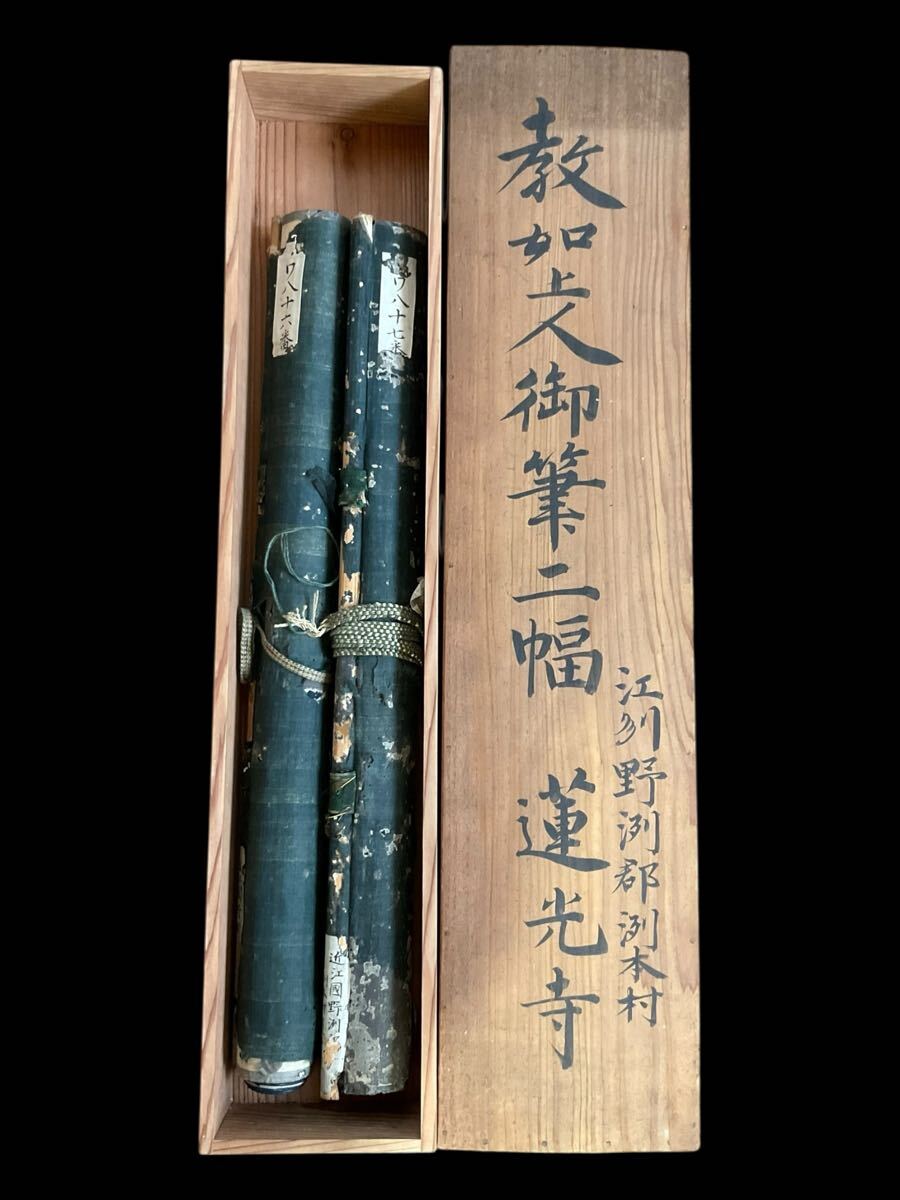 教如上人御筆二幅 蓮光寺
江刕野洌郡洌本村
ワ八十七番
ワ八十六番
近江國野洌